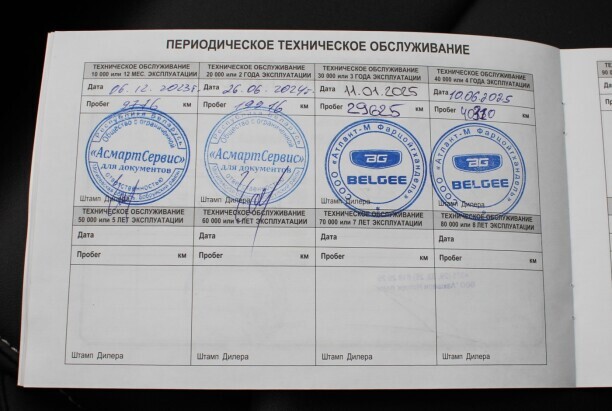 ПЕРИОДИЧЕСКОЕ ТЕХНИЧЕСКОЕ ОБСЛУЖИВАНИЕ
ТЕХНИЧЕСКОЕ ОБСЛУЖИВАНИЕ
10 000 или 12 МЕС. ЭКСПЛУАТАЦИИ
Дата 06.12.2023г.
Пробег 9716 км
Республика Беларусь
Общество с ограниченной
«АсмартСервис»
для документов
ответственностью
Штамп Дилера
ТЕХНИЧЕСКОЕ ОБСЛУЖИВАНИЕ
20 000 или 2 ГОДА ЭКСПЛУАТАЦИИ
Дата 26.06.2024г.
Пробег 19916 км
Общество с ограниченной
«АсмартСервис»
для документов
Штамп Дилера
ТЕХНИЧЕСКОЕ ОБСЛУЖИВАНИЕ
30 000 или 3 ГОДА ЭКСПЛУАТАЦИИ
Дата 11.01.2025
Пробег 29625 км
ООО «Атлант-М Фарцойгхандель»
BELGEE
Штамп Дилера
ТЕХНИЧЕСКОЕ ОБСЛУЖИВАНИЕ
40 000 или 4 ГОДА ЭКСПЛУАТАЦИИ
Дата 10.06.2025
Пробег км
ООО «Атлант-М Фарцойгхандель»
BELGEE
Штамп Дилера
ТЕХНИЧЕСКОЕ ОБСЛУЖИВАНИЕ
50 000 или 5 ЛЕТ ЭКСПЛУАТАЦИИ
Дата
Пробег км
Штамп Дилера
ТЕХНИЧЕСКОЕ ОБСЛУЖИВАНИЕ
60 000 или 6 ЛЕТ ЭКСПЛУАТАЦИИ
Дата
Пробег км
Штамп Дилера
ТЕХНИЧЕСКОЕ ОБСЛУЖИВАНИЕ
70 000 или 7 ЛЕТ ЭКСПЛУАТАЦИИ
Дата
Пробег км
Штамп Дилера
ТЕХНИЧЕСКОЕ ОБСЛУЖИВАНИЕ
80 000 или 8 ЛЕТ ЭКСПЛУАТАЦИИ
Дата
Пробег км
Штамп Дилера